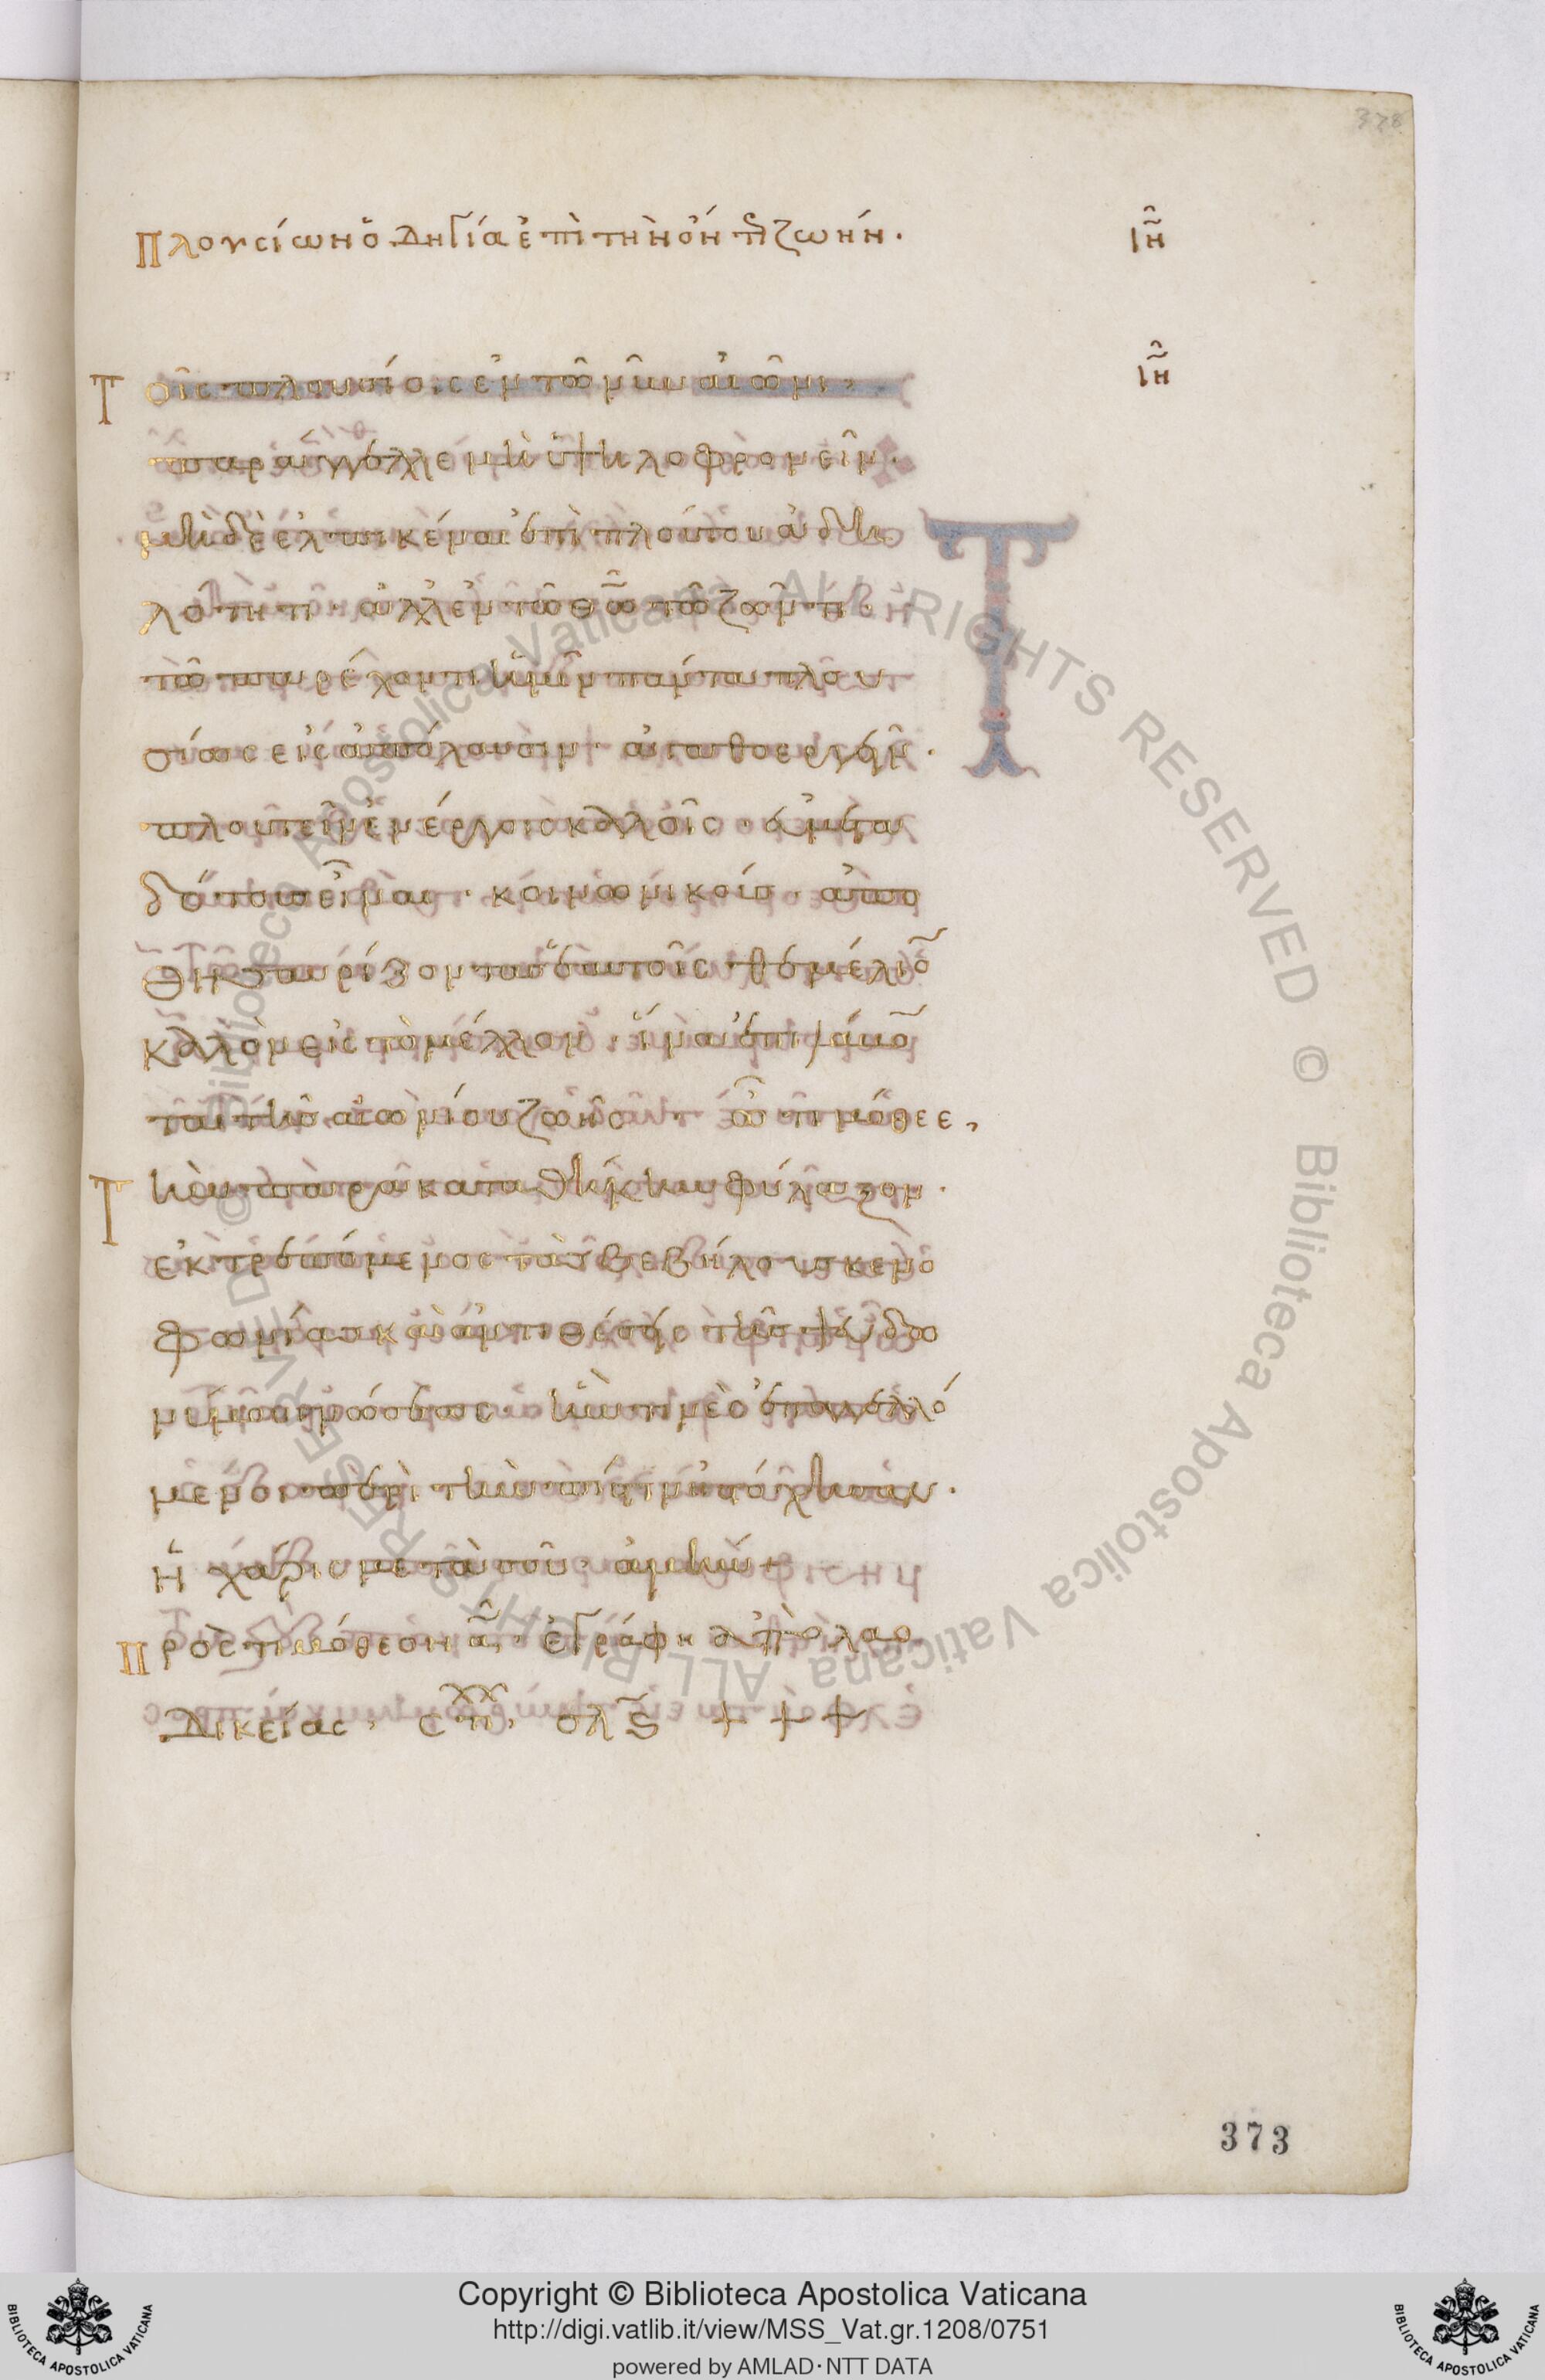 378
Πλουσίων ὁδηγία ἐπὶ τὴν ὄν̈τ ζωήν. ιη
Τοῖς πλουσίοις ἐν τῶ νῦν αἰῶνι, ιη
παράγγελλε μὴ ὑψηλοφρονεῖν.
μὴ δὲ ἐλπικέναι ἐπὶ πλούτου ἀδη
λότητι· ἀλλ' ἐν τῶ θ̅ω̅ τῶ ζῶντι·
τῶ παρέχοντι ἡμῖν πάντα πλου
σίως εἰς ἀπόλαυσιν· ἀγαθοεργεῖν.
πλουτεῖν ἐν ἔργοις καλοῖς·
εἶναι· κοινωνικούσ· ἀπο
θησαυρίζοντασ ἑαυτοῖς θεμέλιο̅
καλὸν εἰς τὸ μέλλον· ἵνα ἐπιλάβω̅
ται τῆσ αἰωνίου ζωῆσ· ὦ τιμόθεε,
Τὴν παρακαταθήκην φύλαξον.
ἐκτρεπόμενος τὰσ βεβήλουσ κενο
φωνίασ καὶ ἀντιθέσεις τῆσ ψευδω
νύμου γνώσεως· ἥν τινὲσ ἐπαγγελλό
μενοι περὶ τὴν πίστιν ἠστόχησαν.
ἡ χάρισ μετὰ σοῦ· ἀμήν +
Πρὸς τιμόθεον α̅· ἐγράφη ἀπὸ λαο
δικείας, σλ + + +
373
Copyright © Biblioteca Apostolica Vaticana
http://digi.vatlib.it/view/MSS_Vat.gr.1208/0751
powered by AMLAD·NTT DATA
BIBLIOTECA APOSTOLICA VATICANA
BIBLIOTECA APOSTOLICA VATICANA
© Biblioteca Apostolica Vaticana ALL RIGHTS RESERVED © Biblioteca Apostolica Vaticana ALL RIGHTS RESERVED